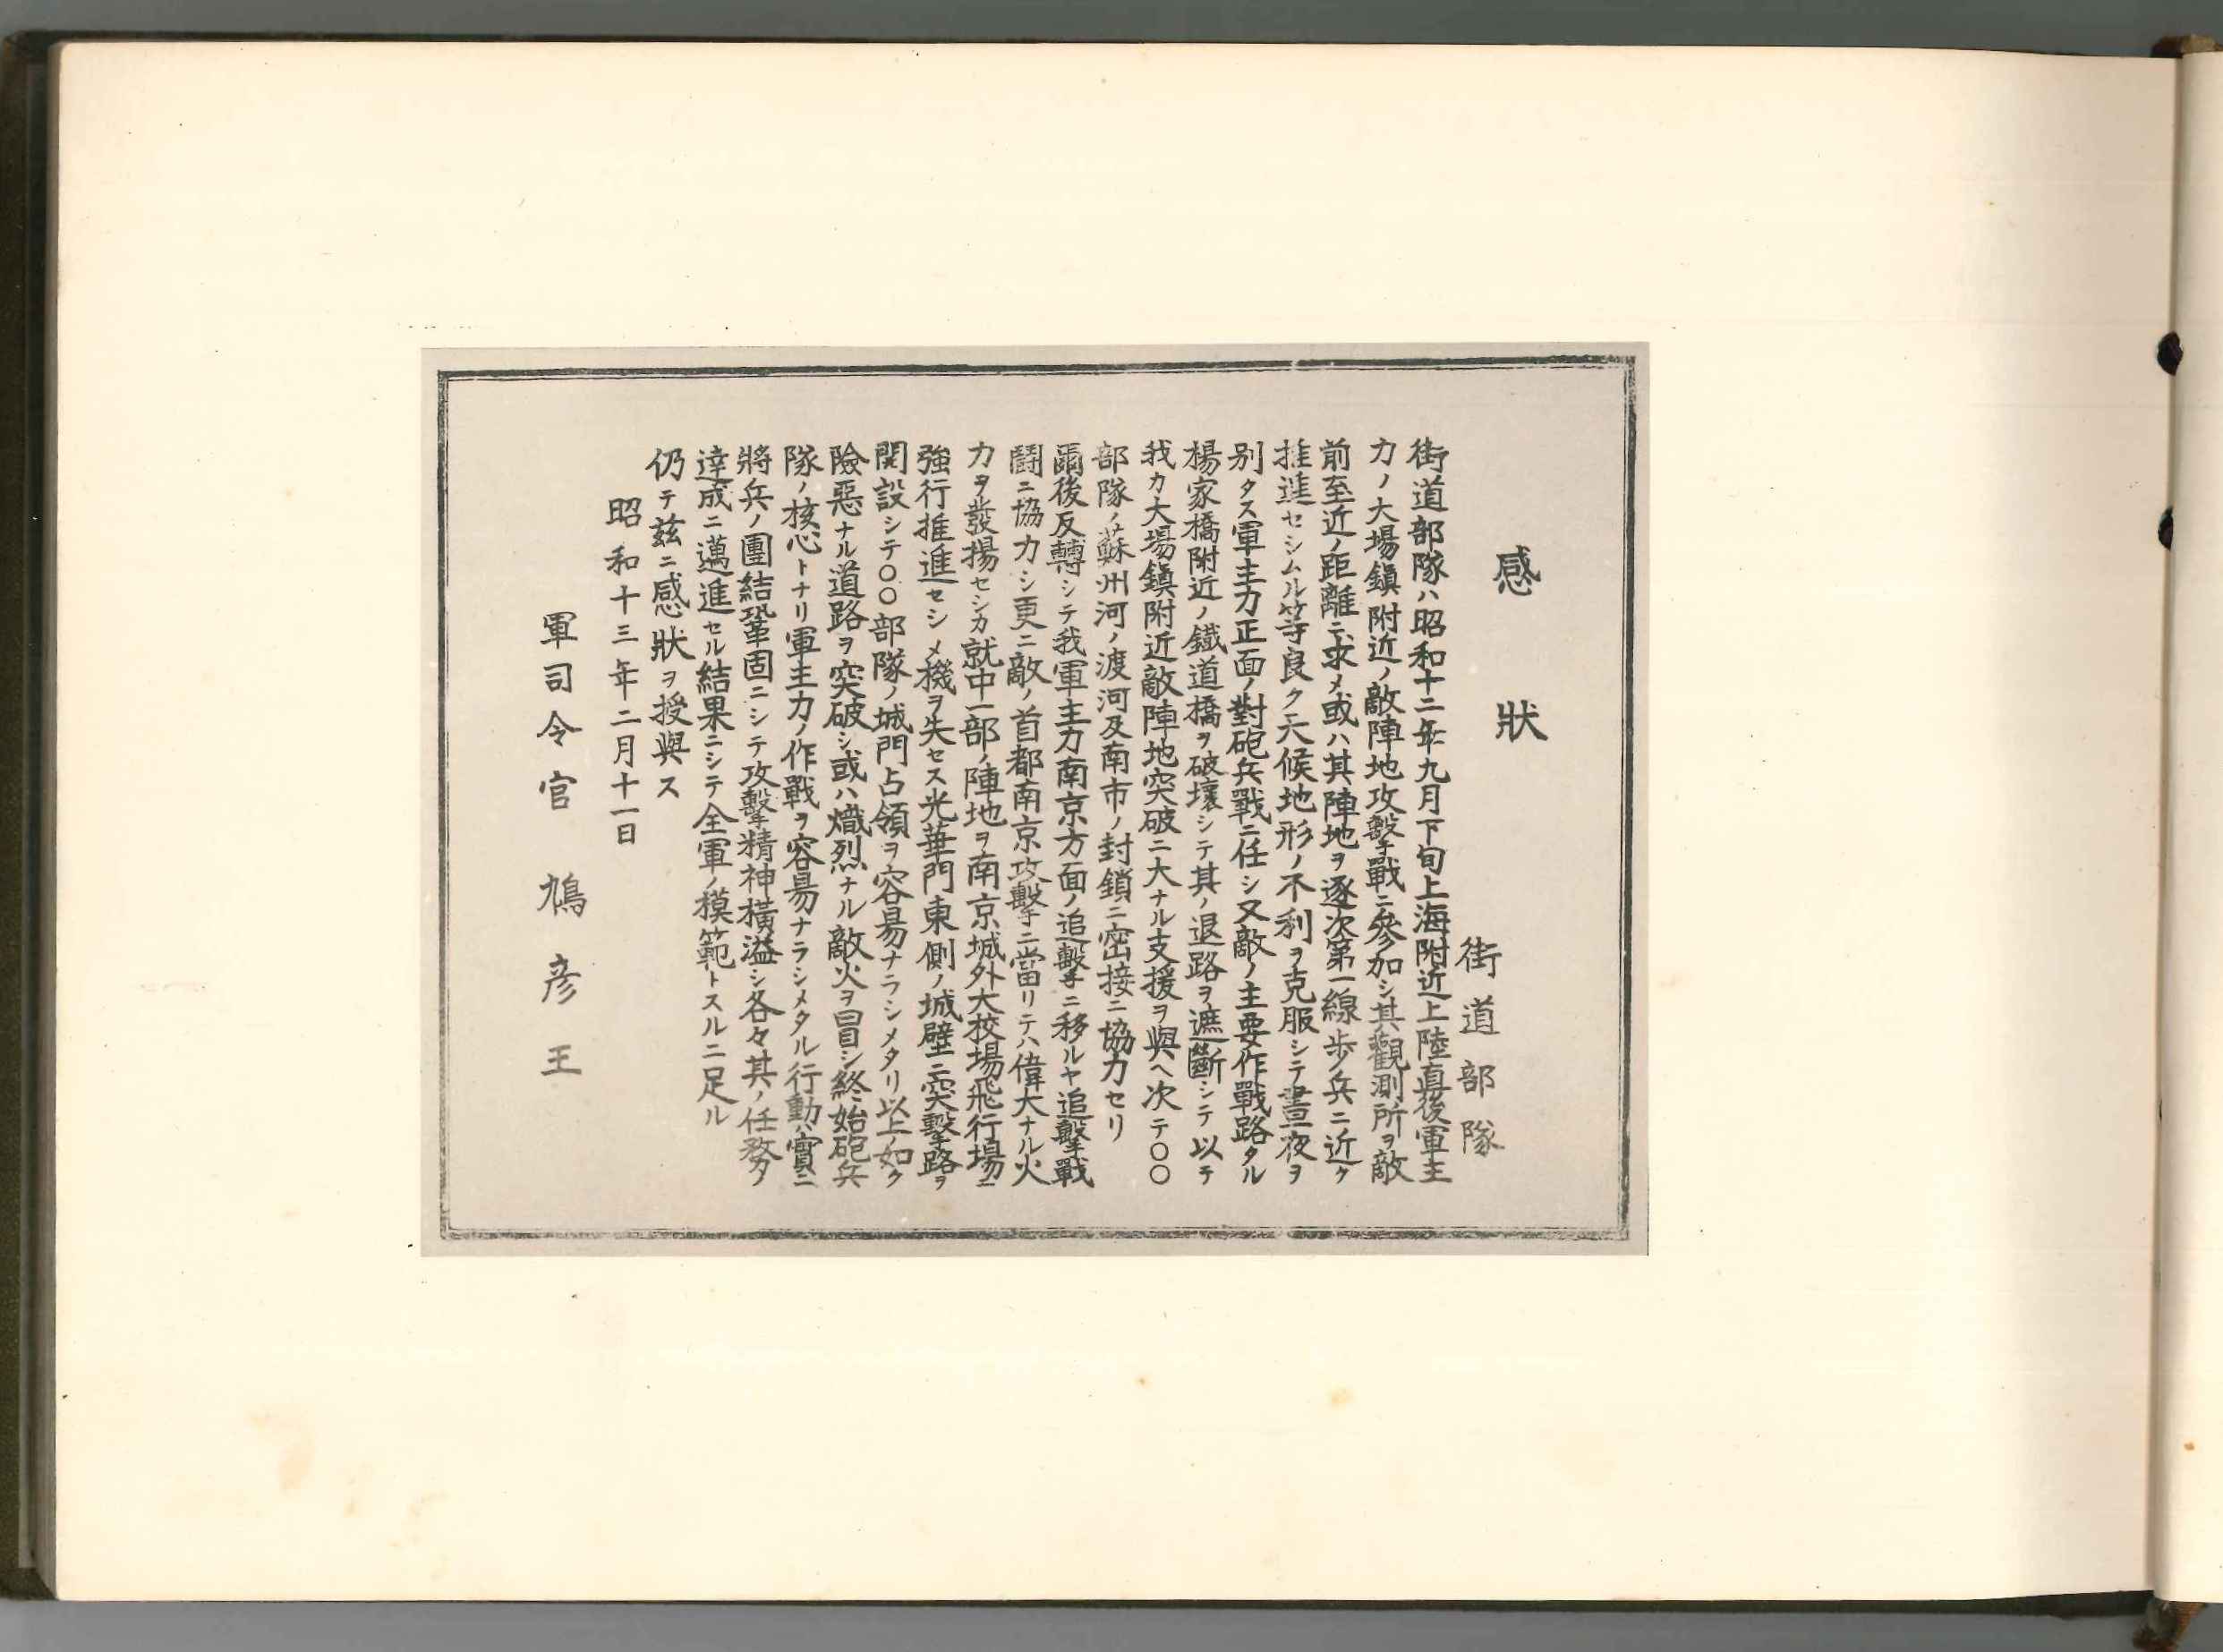 感狀
街道部隊
街道部隊ハ昭和十二年九月下旬上海附近上陸直後軍主
力ノ大場鎭附近ノ敵陣地攻擊戰ニ參加シ其觀測所ヲ敵
前至近ノ距離ニ求メ或ハ其陣地ヲ逐次第一線步兵ニ近ク
推進セシムル等良ク天候地形ノ不利ヲ克服シテ晝夜ヲ
別タス軍主力正面ノ對砲兵戰ニ任シ又敵ノ主要作戰路タル
楊家橋附近ノ鐵道橋ヲ破壞シテ其ノ退路ヲ遮斷シテ以テ
我カ大場鎭附近敵陣地突破ニ大ナル支援ヲ與ヘ次テ〇〇
部隊ノ蘇州河ノ渡河及南市ノ封鎖ニ密接ニ協力セリ
爾後反轉シテ我軍主力南京方面ノ追擊ニ移ルヤ追擊戰
鬪ニ協力シ更ニ敵ノ首都南京攻擊ニ當リテハ偉大ナル火
力ヲ發揚セシカ就中一部ノ陣地ヲ南京城外大校場飛行場ニ
強行推進セシメ機ヲ失セス光華門東側ノ城壁ニ突擊路ヲ
開設シテ〇〇部隊ノ城門占領ヲ容易ナラシメタリ以上ノ如ク
險惡ナル道路ヲ突破シ或ハ熾烈ナル敵火ヲ冒シ終始砲兵
隊ノ核心トナリ軍主力ノ作戰ヲ容易ナラシメタル行動ハ實ニ
將兵ノ團結鞏固ニシテ攻擊精神橫溢シ各々其ノ任務
達成ニ邁進セル結果ニシテ全軍ノ模範トスルニ足ル
仍テ茲ニ感狀ヲ授與ス
昭和十三年二月十一日
軍司令官 鳩彥王